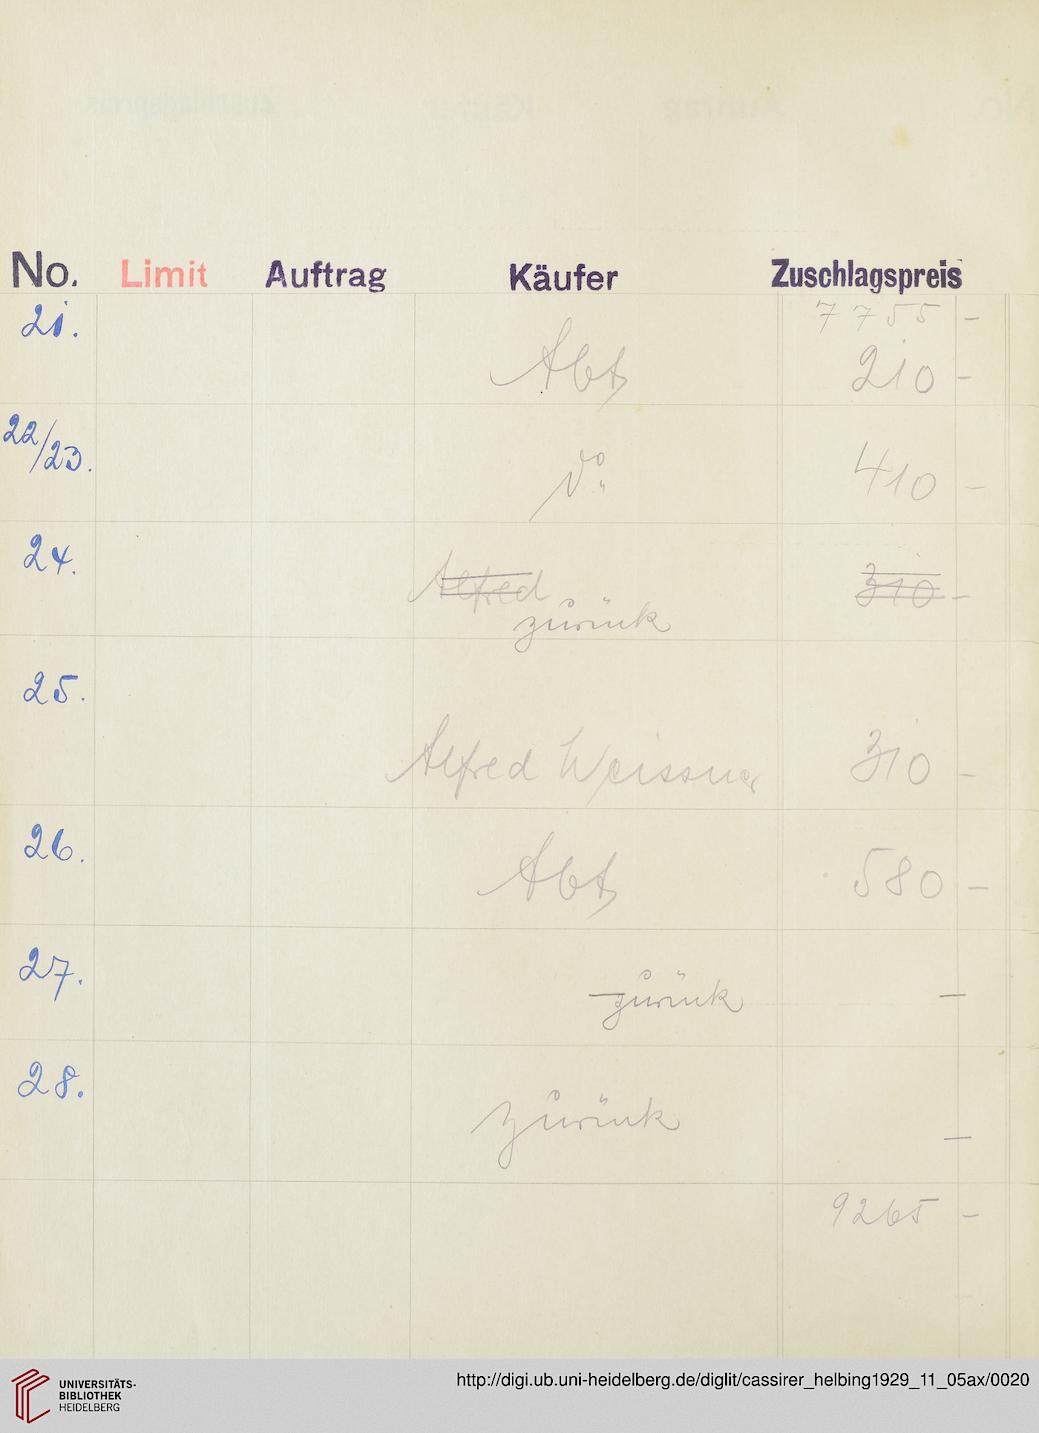 No. Limit Auftrag Käufer Zuschlagspreis
21. 7755 –
Abt 210 –
22/23. do 410 –
24. Alfred 310 –
zurück
25.
Alfred Weissner 310 –
26. Abt 580 –
27. – zurück –
28. zurück –
9265 –
UNIVERSITÄTS-
BIBLIOTHEK
HEIDELBERG
http://digi.ub.uni-heidelberg.de/diglit/cassirer_helbing1929_11_05ax/0020